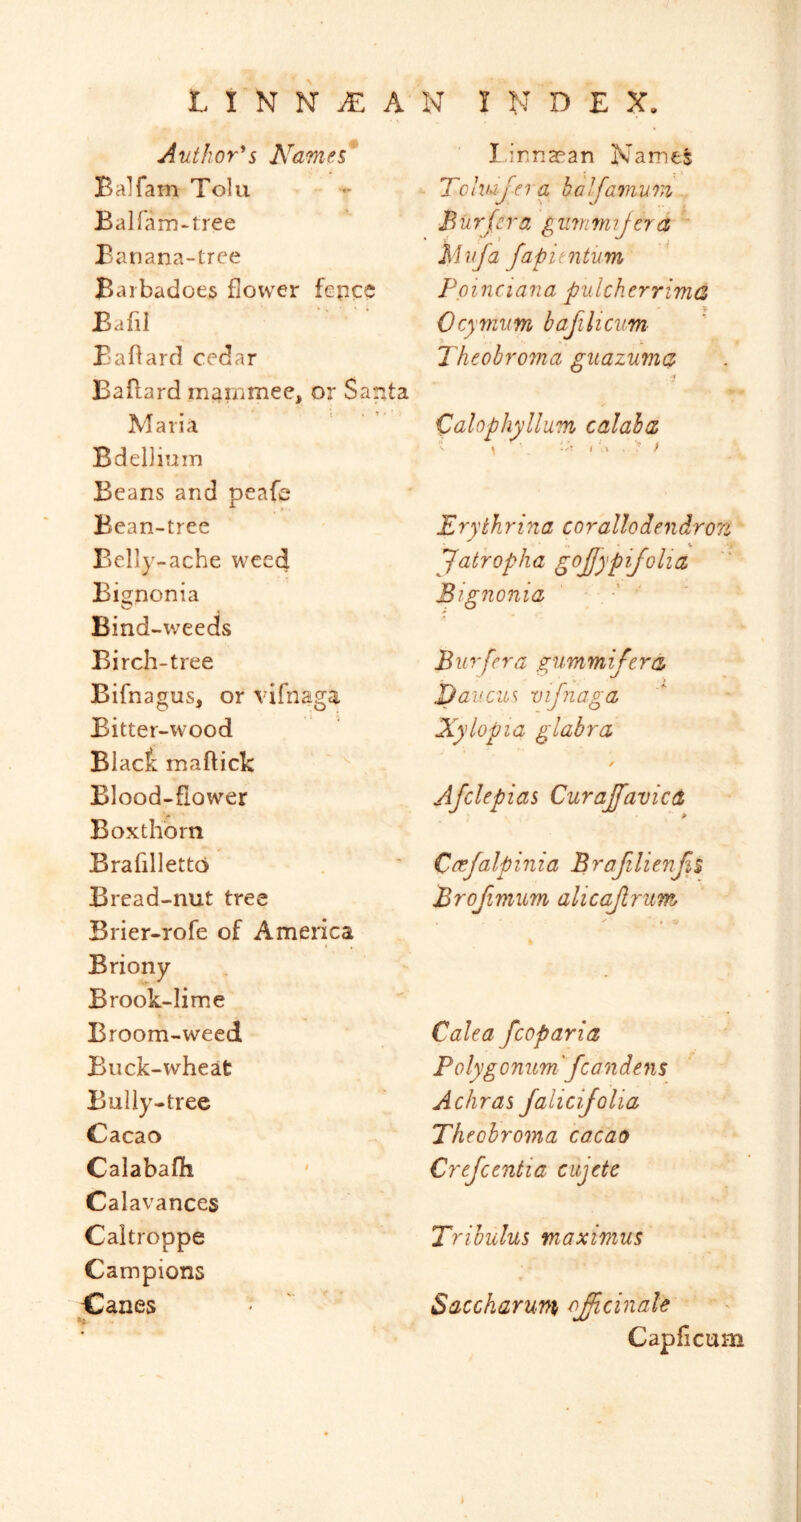 LINNÆAN INDEX.
Author's Names Linnæan Names
Balſam Tolu Toluifera balſamum
Balſam-tree Burſera gummifera
Banana-tree Muſa ſapientum
Barbadoes flower fence Poinciana pulcherrima
Baſil Ocymum baſilicum
Baſtard cedar Theobroma guazuma
Baſtard mammee, or Santa
Maria Calophyllum calaba
Bdellium
Beans and peaſe
Bean-tree Erythrina corallodendron
Belly-ache weed Jatropha goſſypifolia
Bignonia Bignonia
Bind-weeds
Birch-tree Burſera gummifera
Biſnagus, or viſnaga Daucus viſnaga
Bitter-wood Xylopia glabra
Black maſtick
Blood-flower Aſclepias Curaſſavica
Boxthorn
Braſilletto Cæſalpinia Braſilienſis
Bread-nut tree Broſimum alicaſtrum
Brier-roſe of America
Briony
Brook-lime
Broom-weed Calea ſcoparia
Buck-wheat Polygonum ſcandens
Bully-tree Achras ſalicifolia
Cacao Theobroma cacao
Calabaſh Creſcentia cujete
Calavances
Caltroppe Tribulus maximus
Campions
Canes Saccharum officinale
Capſicum